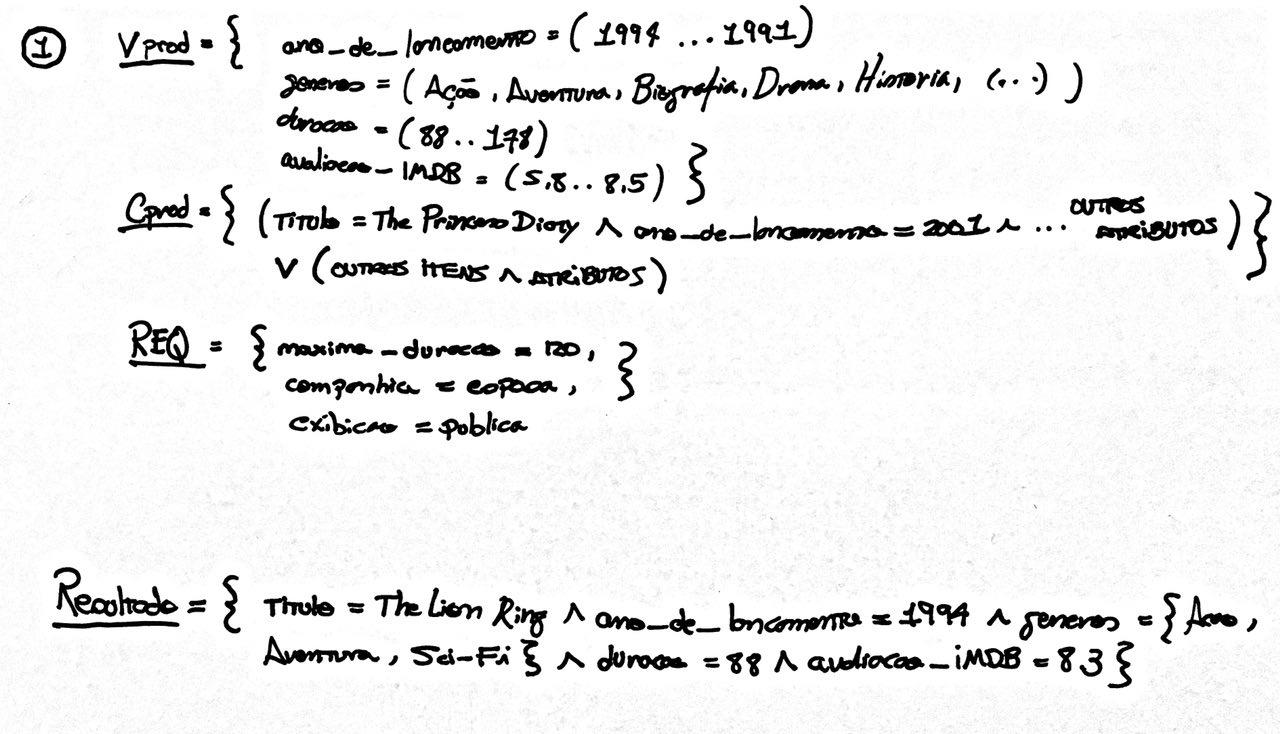 ① Vprod = { ano_de_lancamento = ( 1994 ... 1991 )
generos = ( Ação, Aventura, Biografia, Drama, Historia, (...) )
duracao = ( 88 .. 178 )
avaliacao_IMDB = ( 5.8 .. 8.5 ) }
Cprod = { ( Titulo = The Princess Diary ∧ ano_de_lancamento = 2001 ∧ ... OUTROS ATRIBUTOS ) }
V ( OUTROS ITENS ∧ ATRIBUTOS )
REQ = { maxima_duracao = 120, }
companhia = esposa,
exibicao = publica
Resultado = { Titulo = The Lion King ∧ ano_de_lancamento = 1994 ∧ generos = { Acao,
Aventura, Sci-Fi } ∧ duracao = 88 ∧ avaliacao_iMDB = 8.3 }